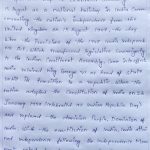 is August as a National holiday in India comm-
-emorating the nation's independence from the
United Kingdom on 15 August 1947, the day
when the Provision of the 1947 Indian Independe
nce Act, which transferred legislative sovereignty
to the Indian Constituent Assembly, came into effect.
India retained King George VI as head of state
until its transition to a republic, when the
nation adopted the Constitution of India on 26
January 1950 (celebrated as Indian Republic Day)
and replaced the dominion Prefix, Dominion of
India with the constitution of India. India attai
ned independence following the independence Move